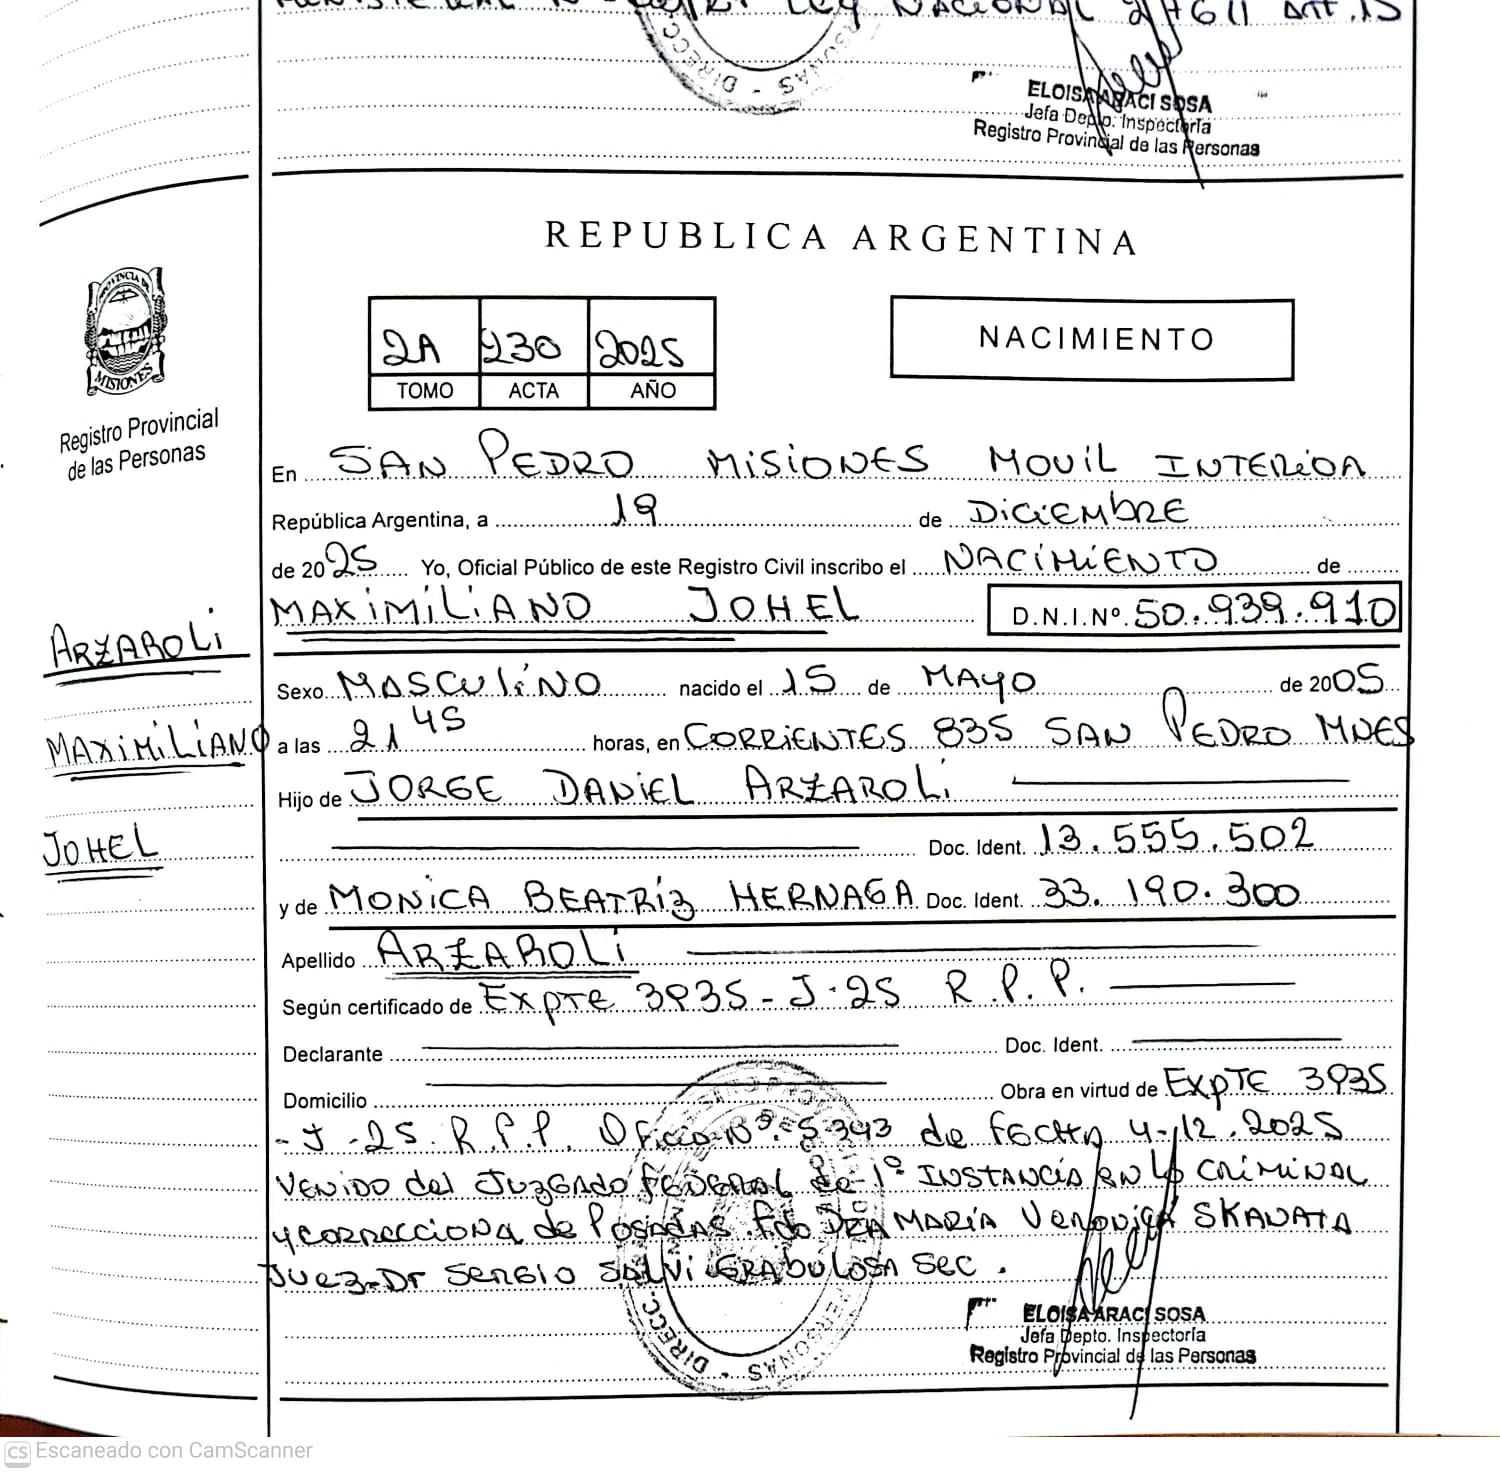 LEY NACIONAL 27611 ART.15
ELOISA ARACI SOSA
Jefa Depto. Inspectoría
Registro Provincial de las Personas
REPUBLICA ARGENTINA
2A 230 2025
TOMO ACTA AÑO
NACIMIENTO
PROVINCIA DE
MISIONES
Registro Provincial
de las Personas
En SAN PEDRO MISIONES MOVIL INTERIOR
República Argentina, a 19 de DICIEMBRE
de 2025 Yo, Oficial Público de este Registro Civil inscribo el NACIMIENTO de
MAXIMILIANO JOHEL D.N.I.Nº. 50.939.910
ARZAROLI
MAXIMILIANO
JOHEL
Sexo MASCULINO nacido el 15 de MAYO de 2005
a las 21 45 horas, en CORRIENTES 835 SAN PEDRO MNES
Hijo de JORGE DANIEL ARZAROLI
Doc. Ident. 13.555.502
y de MONICA BEATRIZ HERNAGA Doc. Ident. 33.190.300
Apellido ARZAROLI
Según certificado de EXPTE 3935-J-25 R.P.P.
Declarante Doc. Ident.
Domicilio Obra en virtud de EXPTE 3935
-J-25.R.P.P. Oficio Nº 5343 de FECHA 4-12.2025
VENIDO del JUZGADO FEDERAL de 1º INSTANCIA EN LO CRIMINAL
Y CORRECCIONA de POSADAS. Fdo DRA MARIA VERONICA SKANATA
JUEZ-Dr SERGIO SALVI GRABULOSA SEC.
DIRECC. PERSONAS
ELOISA ARACI SOSA
Jefa Depto. Inspectoría
Registro Provincial de las Personas
CS Escaneado con CamScanner